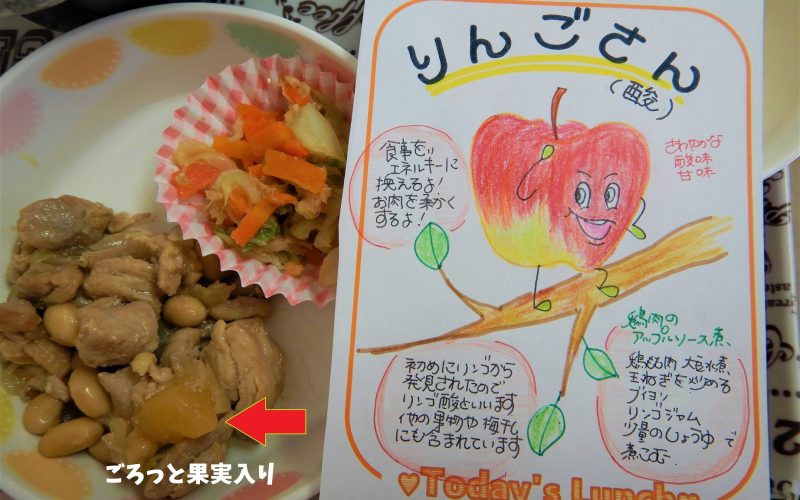 りんごさん
(酸)
さわやかな
酸味
甘味
食事を
エネルギーに
換えるよ!
お肉を柔かく
するよ!
鶏肉の
アップルソース煮
初めにリンゴから
発見されたので
リンゴ酸といいます
他の果物や梅干し
にも含まれています
鶏もも肉 大豆水煮
玉ねぎを炒める
ブイヨン
リンゴジャム
少量のしょうゆ で
煮こむ
Today's Lunch
ごろっと果実入り